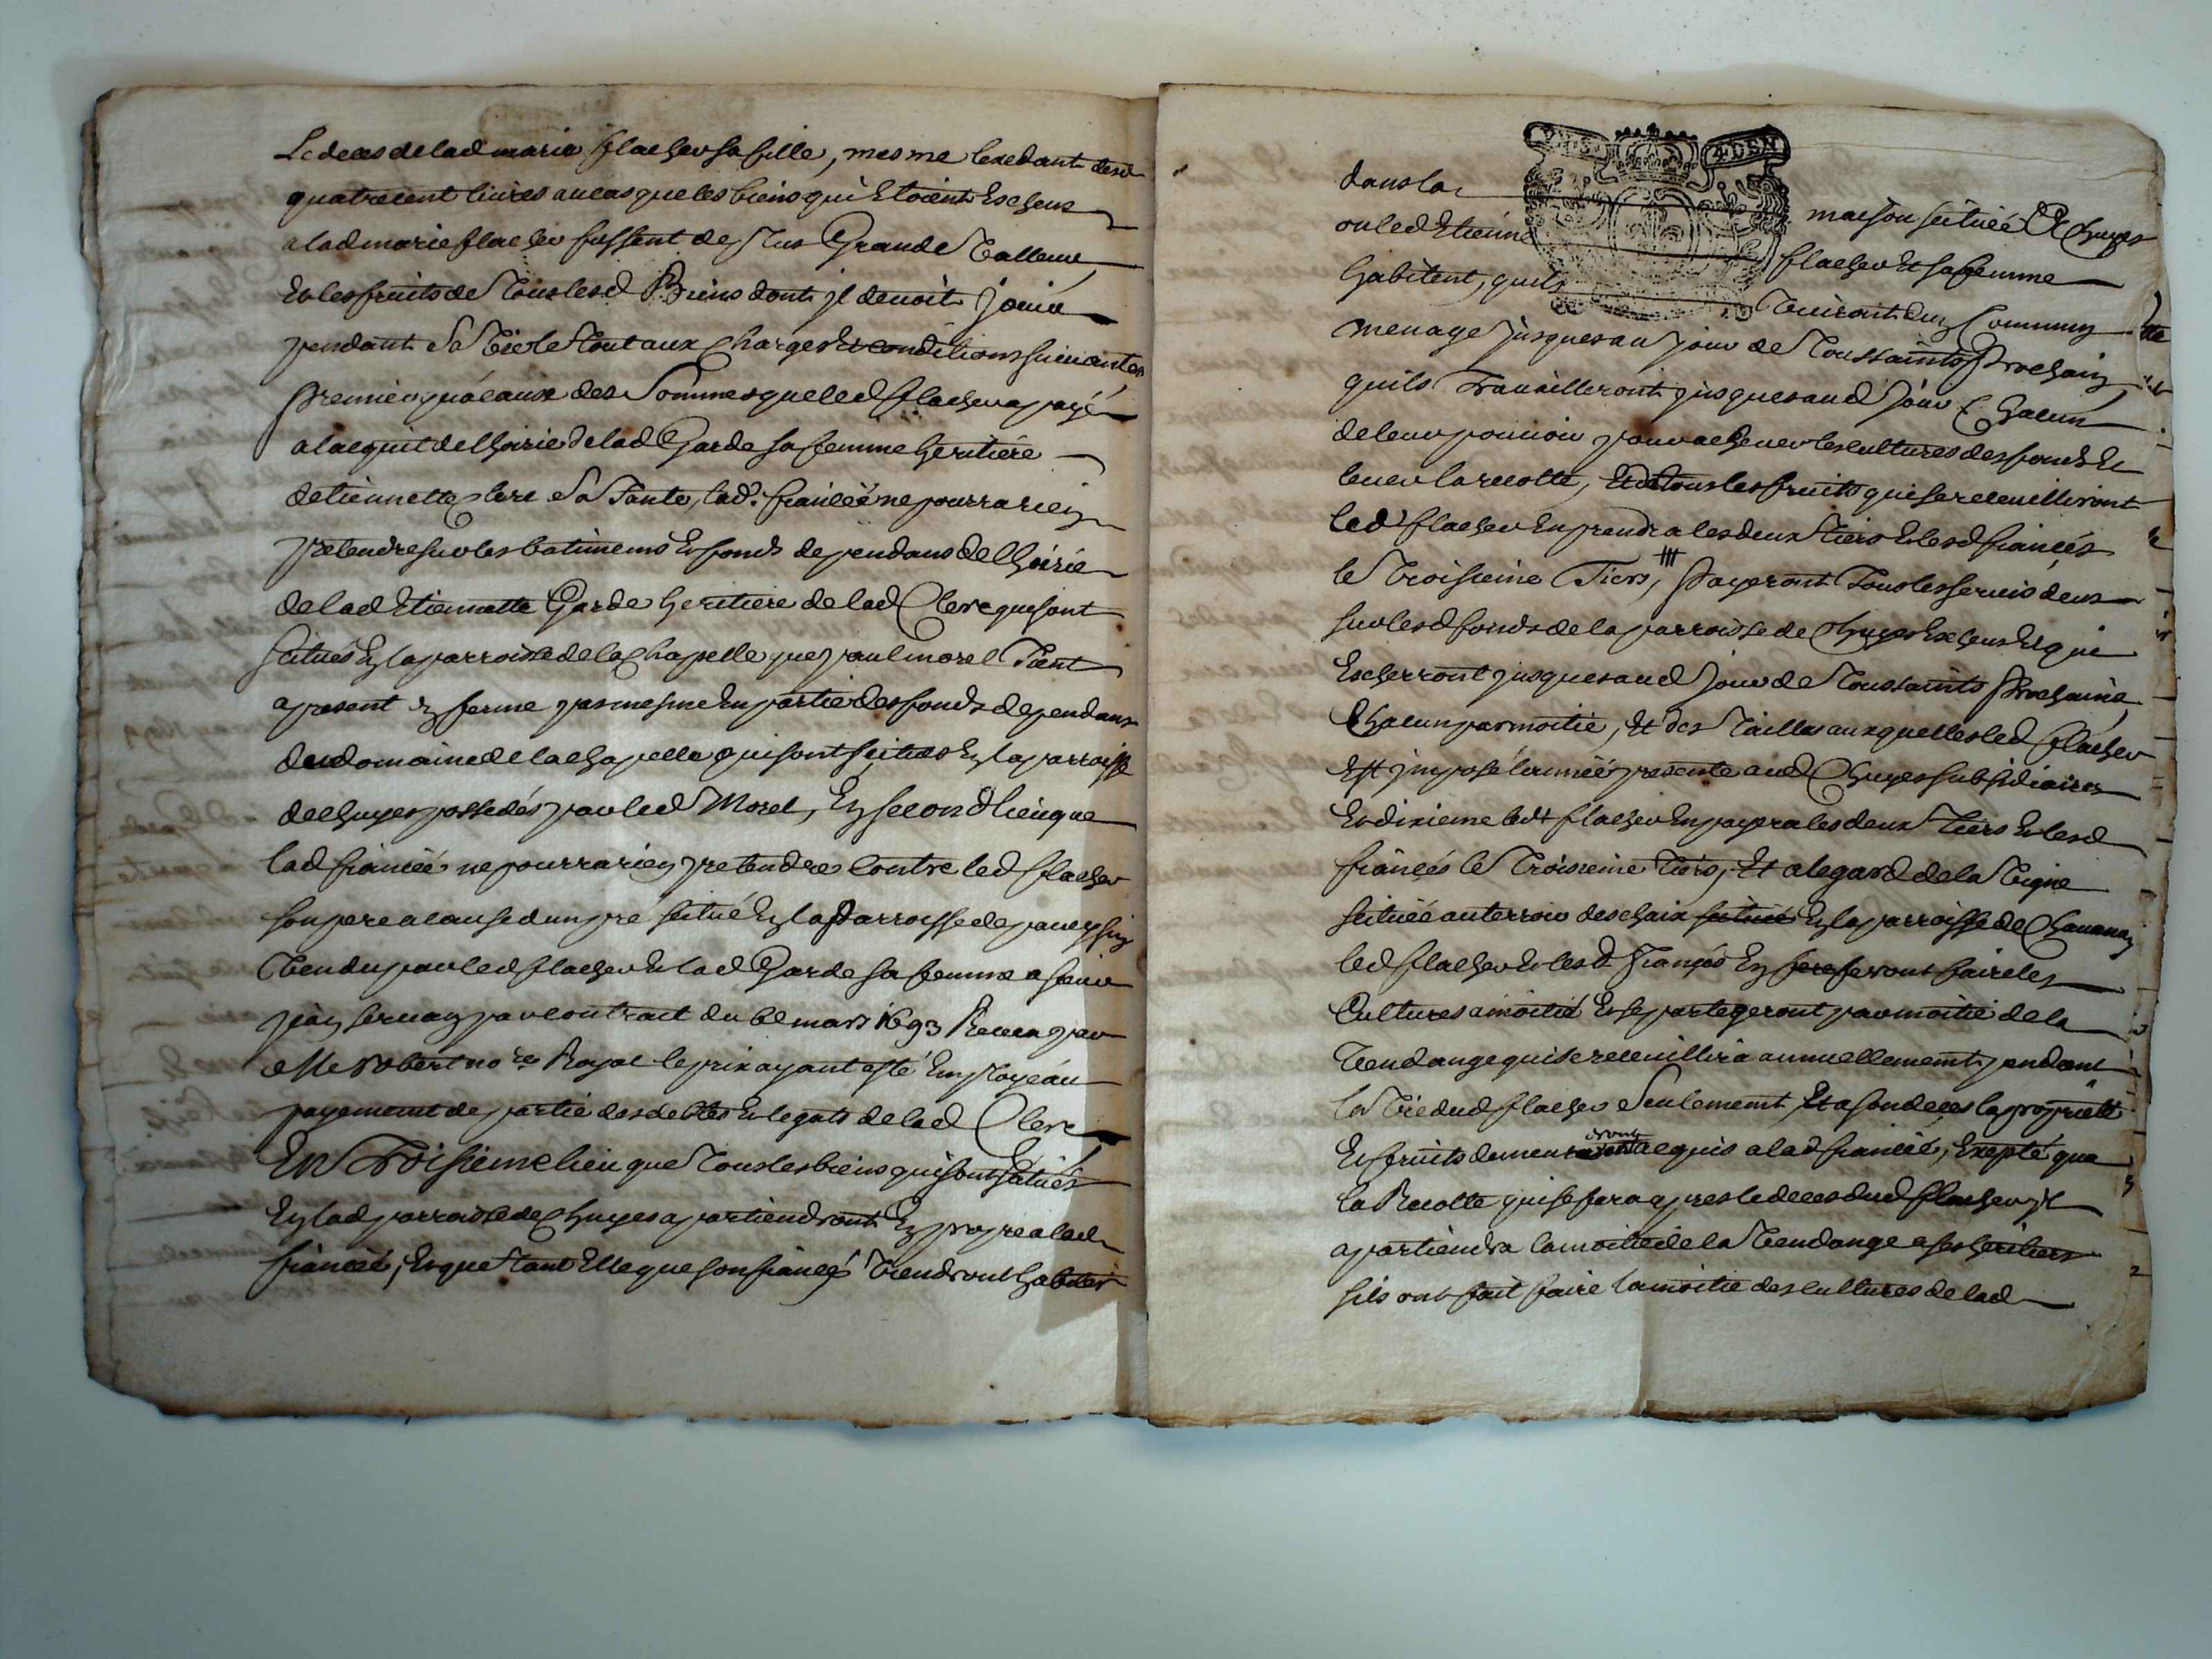 Le deces de lad marie flacher sa fille, mesme lexedant desd
quatrecent livres au cas que les biens qui Etoient Escheus
a lad marie flacher fussent de plus Grande Valleur
Et les fruits de Tous lesd Biens dont jl devoit jouir
pendant Sa Vie le tout aux Charges Et conditions suivantes
premier qu'a cause des Sommes que led flacher a payé
a lacquit de lhoirie de lad Garde sa femme heritiere
detiennette clerc Sa Tante, lad. fiancée ne pourra rien
pretendre sur les batimens Et fonds dependans de lhoirie
de lad Etiennette Garde heritiere de lad Clerc que sont
scitués En la parroisse de la chapelle que paul morel Tient
a present En ferme pas mesme En partie des fonds dependans
du domaine de la chapelle qui sont scitués En la parroisse
de chuyes possedés par led Morel, En second lieu que
lad fiancée ne pourra rien pretendre Contre led flacher
son pere a cause dun pre scitué En la Parroisse de pavezin
Vendu par led flacher Et lad Garde sa femme a feu
jean servan par contract du 6e mars 1693 Receu par
Me Robert nore Royal le prix ayant esté Employé au
payement de partie des debtes Et legats de lad Clerc
En Troisieme lieu que Tous les biens qui sont scitués
En lad parroisse de chuyes apartiendront En propre a lad
fiancée, Et que tant Elle que son fiancé Viendront habiter
dans la maison scituée A Chuyes
ou led Etienne flacher Et sa femme
habitent, quils Vivront dun Commun
menage jusques au jour de Toussaints Prochain
quils Travailleront jusques aud jour Chacun
de leur pouvoir pour achever les cultures des fonds Et
lever la recolte, Et de tous les fruits qui se receuilliront
led flacher En prendra les deux tiers Et lesd fiancés
le Troisieme Tiers, Payeront Tous les servis deus
sur lesd fonds de la parroisse de Chuyes Escheus Et qui
Escherront jusques aud jour de Toussaints Prochaine
Chacun par moitié, Et des Tailles auxquelles led flacher
Est jmposé lannée presente aud Chuyes subsidiaires
Et dixieme led flacher En payera les deux Tiers Et lesd
fiancés le Troisieme Tiers, Et a legard de la Vigne
scituée au terroir deschaix scituée En la parroisse de Chavanay
led flacher Et lesd fiancés En feront faire les
Cultures a moitié Et se partegeront par moitié de la
Vendange qui se receuillira annuellement pendant
la Vie dud flacher Seulement Et a son deces la proprieté
Et fruits demeureront acquis a lad fiancée, Exepté que
la Recolte qui se fera apres le deces dud flacher jl
apartiendra la moitié de la Vendange a ses heritiers
sils ont fait faire la moitie des cultures de lad